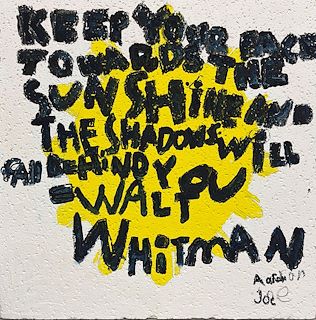 KEEP YOUR FACE
TOWARDS THE
SUNSHINE AND
THE SHADOWS WILL
FALL BEHIND YOU
= WALT
WHITMAN